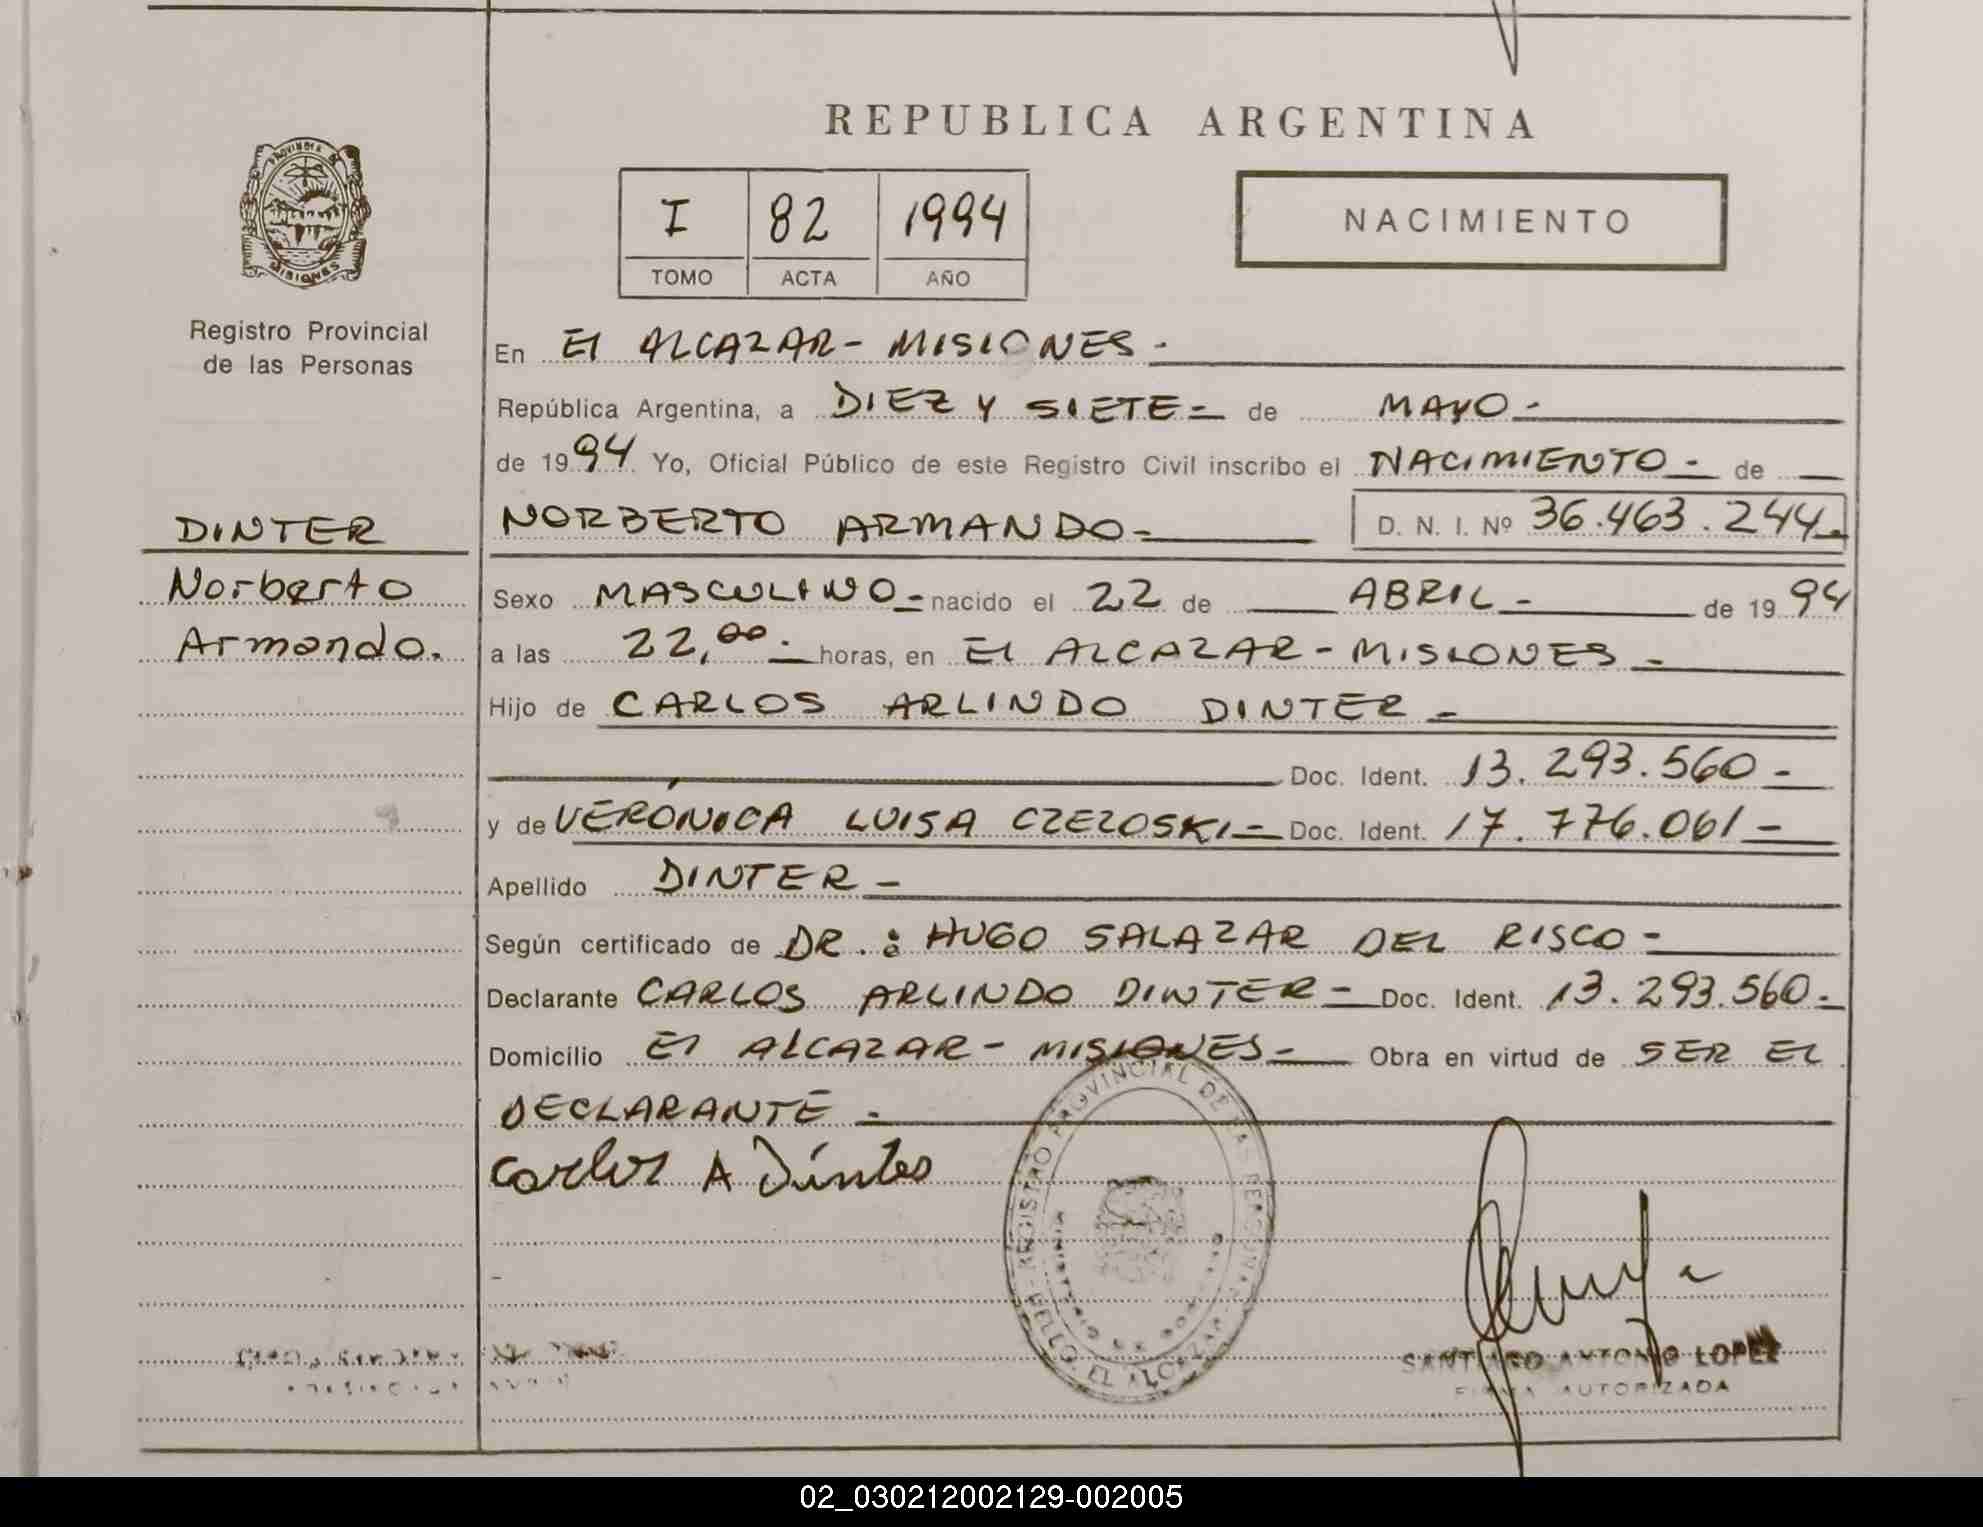 REPUBLICA ARGENTINA
PROVINCIA DE
MISIONES
Registro Provincial
de las Personas
I 82 1994
TOMO ACTA AÑO
NACIMIENTO
En El ALCAZAR - MISIONES -
República Argentina, a DIEZ Y SIETE - de MAYO -
de 1994 Yo, Oficial Público de este Registro Civil inscribo el NACIMIENTO - de
DINTER
NORBERTO ARMANDO - D. N. I. Nº 36.463.244 -
Norberto
Sexo MASCULINO - nacido el 22 de ABRIL - de 1994
Armando.
a las 22,00 - horas, en El ALCAZAR - MISIONES -
Hijo de CARLOS ARLINDO DINTER -
Doc. Ident. 13.293.560 -
y de VERÓNICA LUISA CZEZOSKI - Doc. Ident. 17.776.061 -
Apellido DINTER -
Según certificado de DR.: HUGO SALAZAR DEL RISCO -
Declarante CARLOS ARLINDO DINTER - Doc. Ident. 13.293.560 -
Domicilio El ALCAZAR - MISIONES - Obra en virtud de SER EL
DECLARANTE -
Carlos A Dinter
REGISTRO PROVINCIAL DE LAS PERSONAS
MINISTERIO DE GOBIERNO
SELLO EL ALCAZAR
SANTIAGO ANTONIO LOPEZ
FIRMA AUTORIZADA
02_030212002129-002005